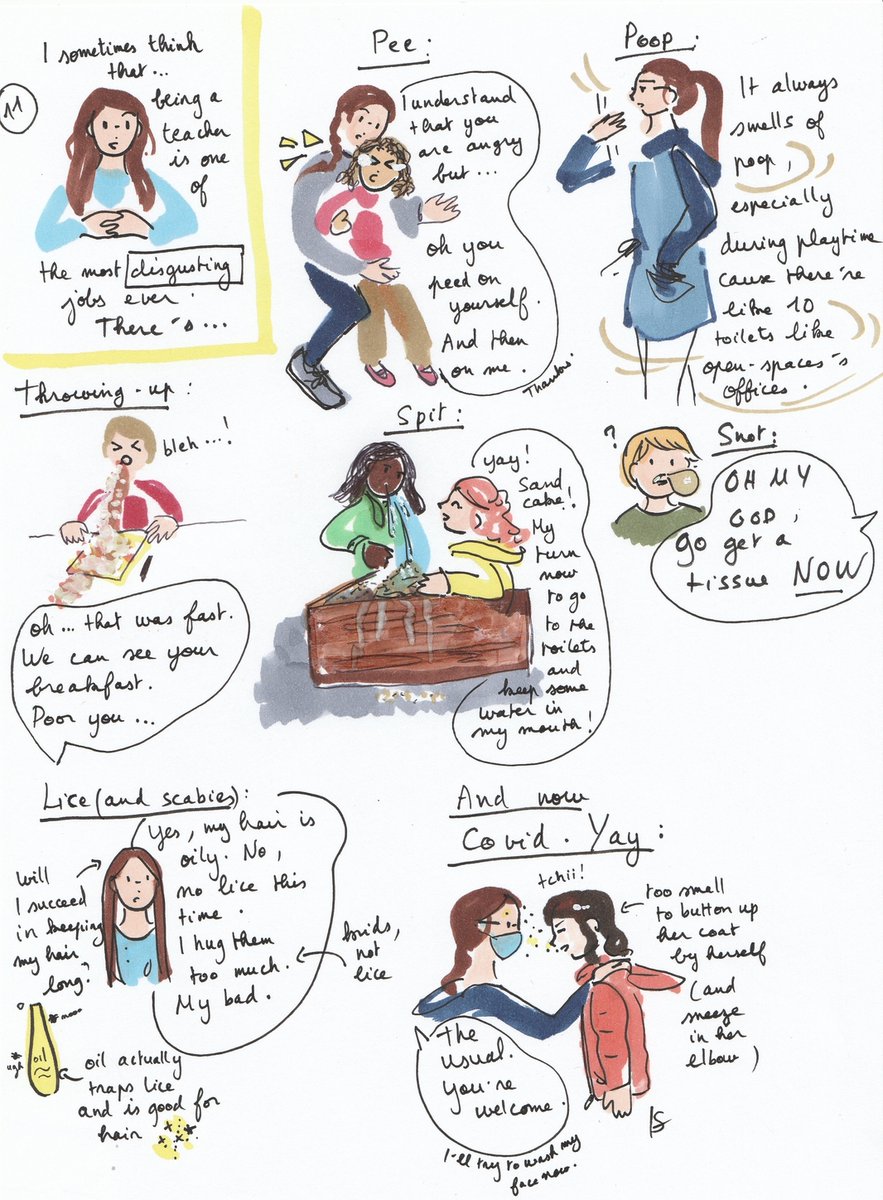 11
I sometimes think
that...
being a
teacher
is one
of
the most disgusting
jobs ever.
There's...
Pee:
I understand
that you
are angry
but...
oh you
peed on
yourself.
And then
on me.
Thanks.
Poop:
It always
smells of
poop,
especially
during playtime
cause there're
like 10
toilets like
open-spaces's
offices.
Throwing-up:
bleh...!
oh... that was fast.
We can see your
breakfast.
Poor you...
Spit:
yay!
Sand
cake!
My
turn
now
to go
to the
toilets
and
keep some
water in
my mouth!
Snot:
?
OH MY
GOD,
go get a
tissue NOW
Lice (and scabies):
Yes, my hair is
oily. No,
no lice this
time.
I hug them
too much.
My bad.
kids,
not
lice
will
I succeed
in keeping
my hair
long?
nooo
ugh
oil
oil actually
traps lice
and is good for
hair
And now
Covid. Yay:
tchii!
too small
to button up
her coat
by herself
(and
sneeze
in her
elbow)
The
usual.
You're
welcome.
I'll try to wash my
face now.
LS